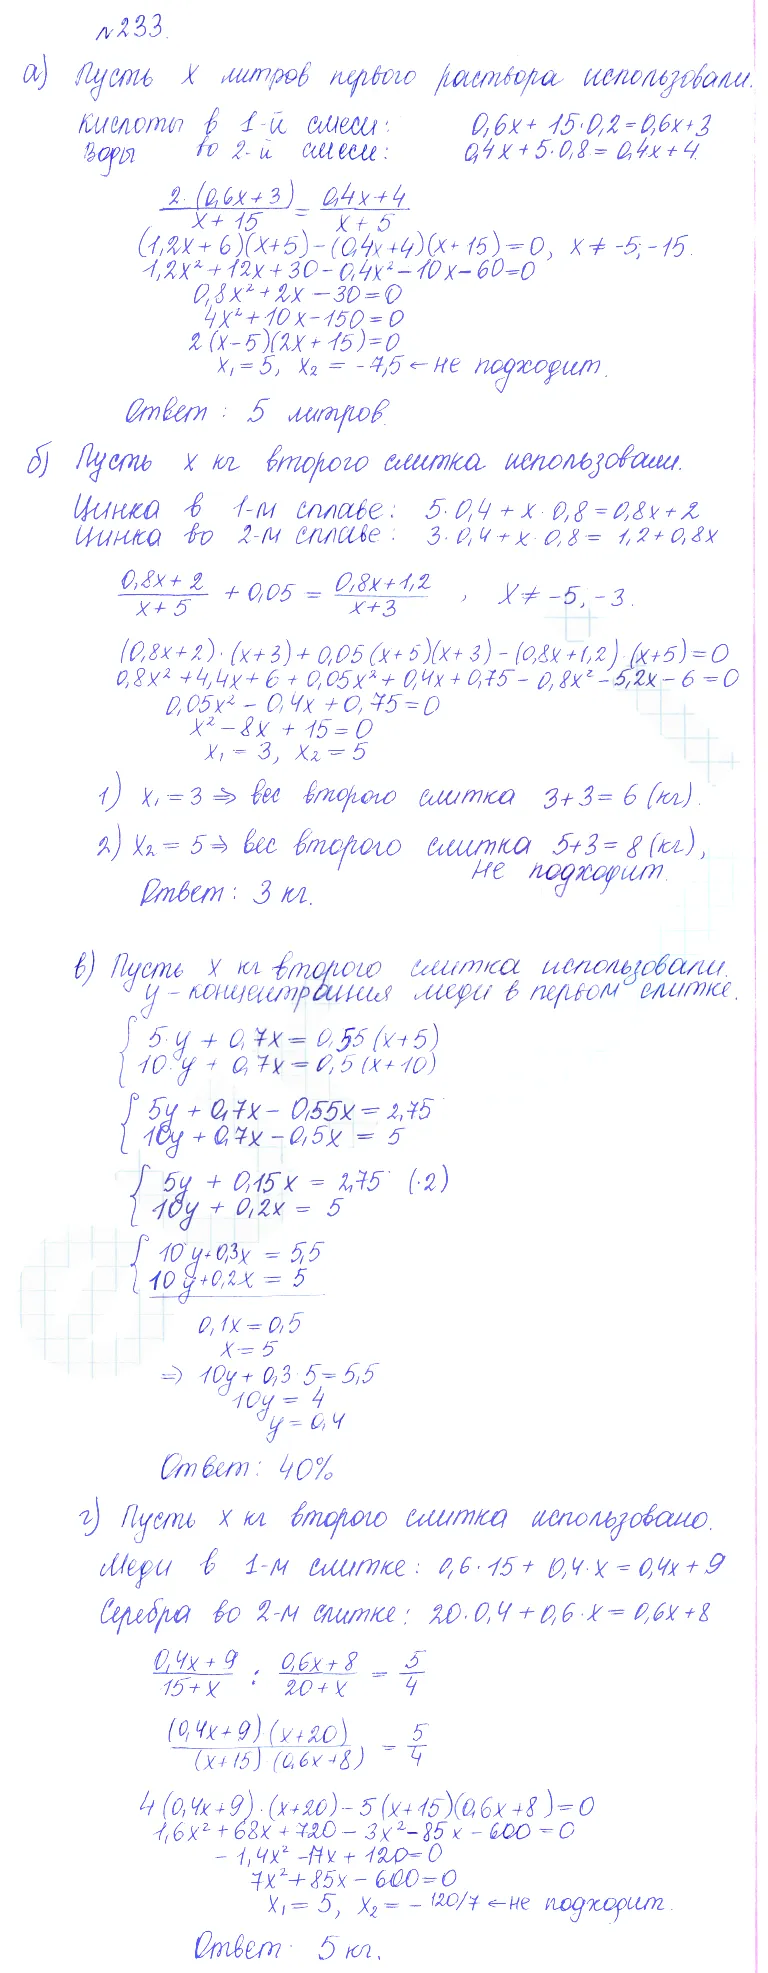 №233.
а) Пусть x литров первого раствора использовали.
Кислоты в 1-й смеси: 0,6x + 15·0,2 = 0,6x+3
Воды во 2-й смеси: 0,4x + 5·0,8 = 0,4x + 4.
2·(0,6x+3)/(x+15) = (0,4x+4)/(x+5)
(1,2x + 6)(x+5) - (0,4x+4)(x+15) = 0, x ≠ -5; -15.
1,2x² + 12x + 30 - 0,4x² - 10x - 60 = 0
0,8x² + 2x - 30 = 0
4x² + 10x - 150 = 0
2(x-5)(2x+15) = 0
x₁ = 5, x₂ = -7,5 ← не подходит.
Ответ: 5 литров.
б) Пусть x кг второго слитка использовали.
Цинка в 1-м сплаве: 5·0,4 + x·0,8 = 0,8x + 2
Цинка во 2-м сплаве: 3·0,4 + x·0,8 = 1,2 + 0,8x
(0,8x + 2)/(x + 5) + 0,05 = (0,8x + 1,2)/(x + 3), x ≠ -5, -3.
(0,8x+2)·(x+3) + 0,05(x+5)(x+3) - (0,8x+1,2)·(x+5) = 0
0,8x² + 4,4x + 6 + 0,05x² + 0,4x + 0,75 - 0,8x² - 5,2x - 6 = 0
0,05x² - 0,4x + 0,75 = 0
x² - 8x + 15 = 0
x₁ = 3, x₂ = 5
1) x₁ = 3 ⇒ вес второго слитка 3+3 = 6 (кг).
2) x₂ = 5 ⇒ вес второго слитка 5+3 = 8 (кг),
не подходит.
Ответ: 3 кг.
в) Пусть x кг второго слитка использовали.
y - концентрация меди в первом слитке.
{ 5·y + 0,7x = 0,55(x+5)
10·y + 0,7x = 0,5(x+10)
{ 5y + 0,7x - 0,55x = 2,75
10y + 0,7x - 0,5x = 5
{ 5y + 0,15x = 2,75 (·2)
10y + 0,2x = 5
{ 10y + 0,3x = 5,5
10y + 0,2x = 5
0,1x = 0,5
x = 5
⇒ 10y + 0,3·5 = 5,5
10y = 4
y = 0,4
Ответ: 40%
г) Пусть x кг второго слитка использовано.
Меди в 1-м слитке: 0,6·15 + 0,4·x = 0,4x + 9
Серебра во 2-м слитке: 20·0,4 + 0,6·x = 0,6x + 8
(0,4x + 9)/(15 + x) : (0,6x + 8)/(20 + x) = 5/4
(0,4x + 9)·(x+20)/((x+15)·(0,6x+8)) = 5/4
4(0,4x+9)·(x+20) - 5(x+15)(0,6x+8) = 0
1,6x² + 68x + 720 - 3x² - 85x - 600 = 0
-1,4x² - 17x + 120 = 0
7x² + 85x - 600 = 0
x₁ = 5, x₂ = -120/7 ← не подходит.
Ответ: 5 кг.